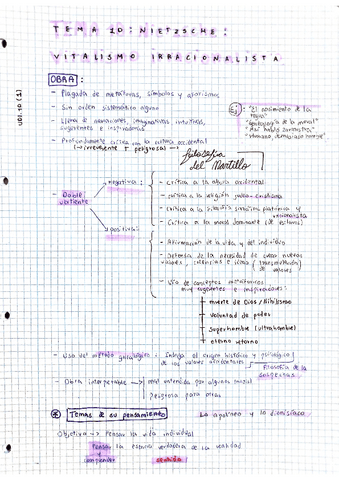 TEMA 10: NIETZSCHE:
VITALISMO IRRACIONALISTA
UDI. 10 (1)
OBRA:
- Plagada de metáforas, símbolos y aforismos
- Sin orden sistemático alguno
- Llena de narraciones, imaginativas intuitivas,
sugerentes e inspiradoras
- Profundamente crítica con la cultura occidental
(irreverente y peligrosa)
ej:
- "El nacimiento de la
- "Genealogía de la moral"
- "Así habló Zaratustra"
- "Humano, demasiado humano"
filosofía
del Martillo
- Doble
vertiente
negativa:
- Crítica a la cultura occidental
- Crítica a la religión judeo-cristiana
- Crítica a la filosofía socrática platónica y
racionalista
- Crítica a la moral dominante (de esclavos)
positiva:
- Afirmación de la vida y del individuo
- Defensa de la necesidad de crear nuevos
valores, creencias e ideas (transmutación
de valores
- Uso de conceptos metafóricos
muy sugerentes e inspiradores:
muerte de Dios / Nihilismo
voluntad de poder
superhombre (ultrahombre)
eterno retorno
- Uso del método genealógico: Indaga el origen histórico y psicológico
de los valores occidentales
Filosofía de la
sospecha
- Obra interpretable
mal entendida por algunos
peligrosa para otros
Temas de su pensamiento
Lo apolíneo y lo dionisíaco
Objetivo → Pensar la vida individual
Pensar la esencia verdadera de la realidad
y
comprender